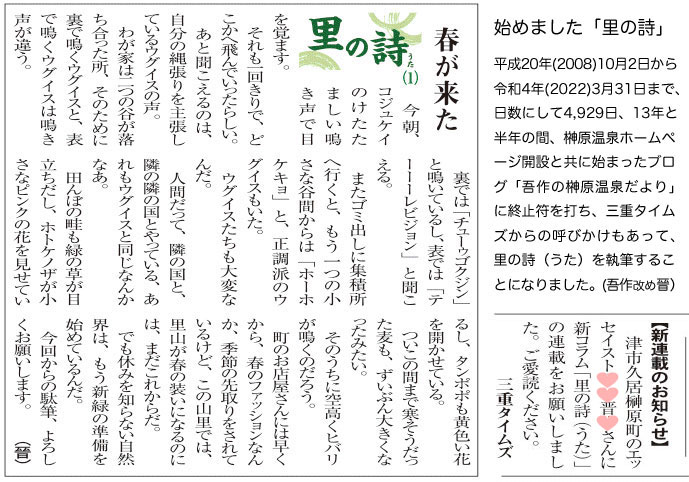 春が来た
里の詩
うた
(1)
今朝、
コジュケイ
のけたた
ましい鳴
き声で目
を覚ます。
それも一回きりで、ど
こかへ飛んでいったらしい。
あと聞こえるのは、
自分の縄張りを主張し
ているウグイスの声。
わが家は二つの谷が落
ち合った所、そのために
裏で鳴くウグイスと、表
で鳴くウグイスは鳴き
声が違う。
裏では「チューゥゴクジン」
と鳴いているし、表では「テ
ーーーレビジョン」と聞こ
える。
またゴミ出しに集積所
へ行くと、もう一つの小
さな谷間からは「ホーホ
ケキョ」と、正調派のウ
グイスもいた。
ウグイスたちも大変な
んだ。
人間だって、隣の国と、
隣の隣の国とやっている、あ
れもウグイスと同じなんか
なあ。
田んぼの畦も緑の草が目
立ちだし、ホトケノザが小
さなピンクの花を見せてい
るし、タンポポも黄色い花
を開かせている。
ついこの間まで寒そうだっ
た麦も、ずいぶん大きくな
ったみたい。
そのうちに空高くヒバリ
が鳴くのだろう。
町のお店屋さんには早く
から、春のファッションなん
か、季節の先取りをされて
いるけど、この山里では、
里山が春の装いになるのに
は、まだこれからだ。
でも休みを知らない自然
界は、もう新緑の準備を
始めているんだ。
今回からの駄筆、よろし
くお願いします。
(晉)
始めました「里の詩」
平成20年(2008)10月2日から
令和4年(2022)3月31日まで、
日数にして4,929日、13年と
半年の間、榊原温泉ホームペ
ージ開設と共に始まったブロ
グ「吾作の榊原温泉だより」
に終止符を打ち、三重タイム
ズからの呼びかけもあって、
里の詩（うた）を執筆するこ
とになりました。(吾作改め晉)
【新連載のお知らせ】
津市久居榊原町のエッ
セイスト晉さんに
新コラム「里の詩（うた）」
の連載をお願いしまし
た。ご愛読ください。
三重タイムズ